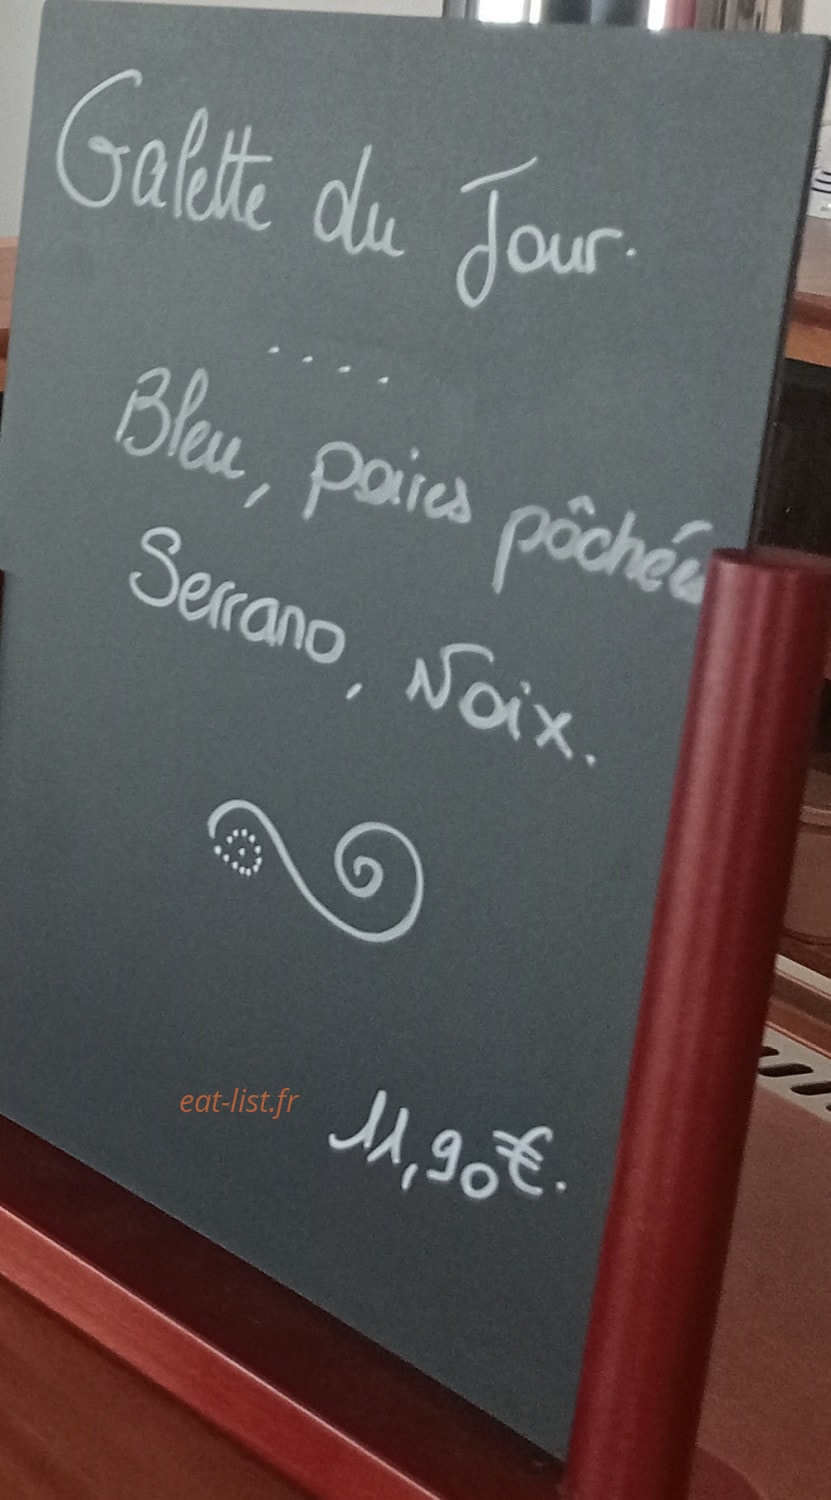 Galette du Jour.
....
Bleu, poires pôchées
Serrano, Noix.
eat-list.fr
11,90€.